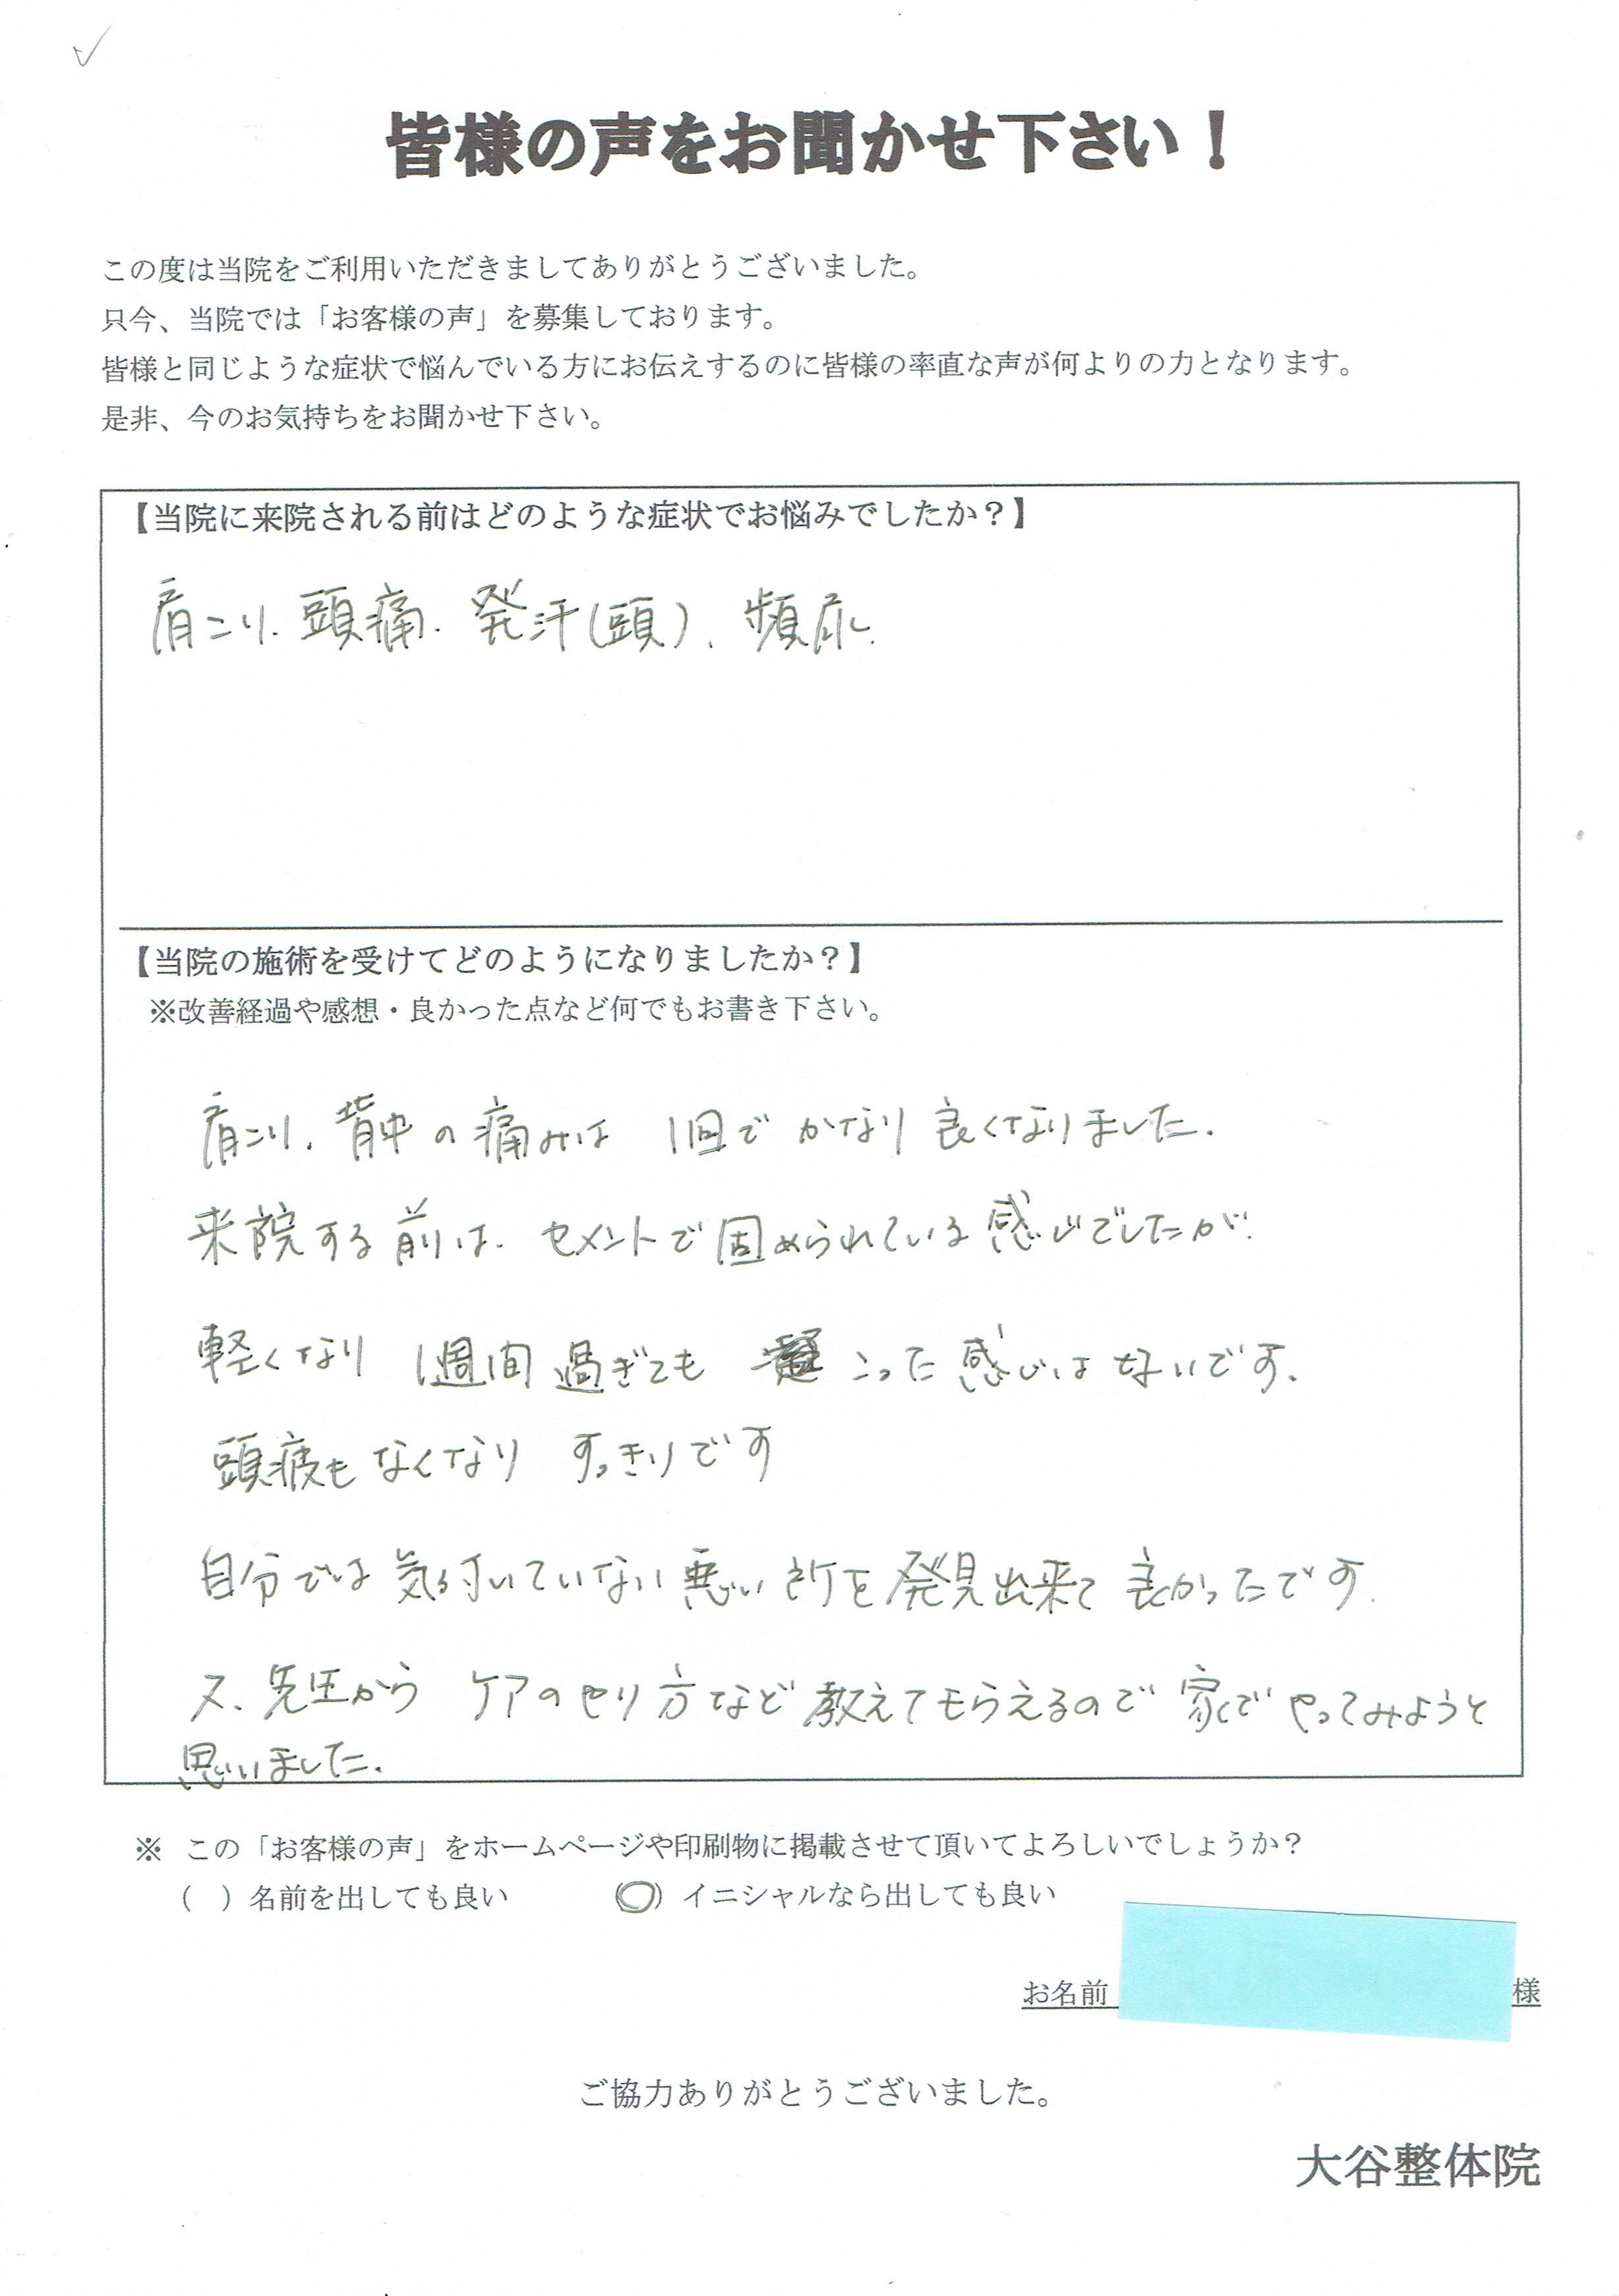 皆様の声をお聞かせ下さい！
この度は当院をご利用いただきましてありがとうございました。
只今、当院では「お客様の声」を募集しております。
皆様と同じような症状で悩んでいる方にお伝えするのに皆様の率直な声が何よりの力となります。
是非、今のお気持ちをお聞かせ下さい。
【当院に来院される前はどのような症状でお悩みでしたか？】
肩こり、頭痛、発汗（頭）、頻尿、
【当院の施術を受けてどのようになりましたか？】
※改善経過や感想・良かった点など何でもお書き下さい。
肩こり、背中の痛みは 1回でかなり良くなりました。
来院する前は、セメントで固められている感じでしたが、
軽くなり 1週間過ぎても こった感じはないです。
頭疲もなくなり すっきりです
自分では気付いていない悪い所を発見出来て良かったです。
又、先生から ケアのやり方など教えてもらえるので家でやってみようと
思いました。
※ この「お客様の声」をホームページや印刷物に掲載させて頂いてよろしいでしょうか？
（ ）名前を出しても良い （○）イニシャルなら出しても良い
お名前 様
ご協力ありがとうございました。
大谷整体院